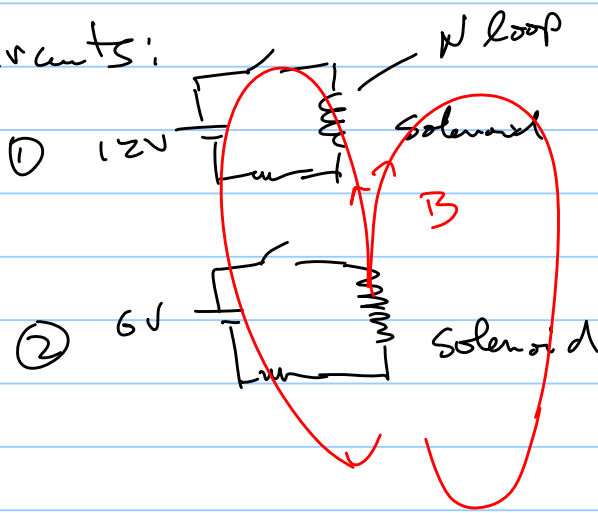 rcuts:
N loop
① 12V Solenoid
B
② 6V Solenoid